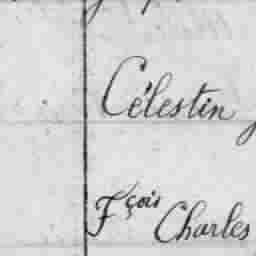 Célestin
Fçois Charles